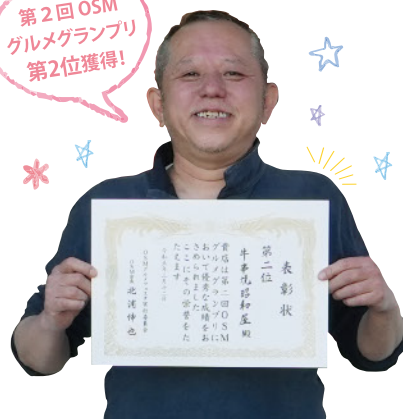 第２回 OSM
グルメグランプリ
第2位獲得!
表彰状
第二位
牛串焼昭和屋 殿
貴店は第二回OSM
グルメグランプリに
おいて優秀な成績をお
さめられました
ここにその栄誉をた
たえます
北浦伸也